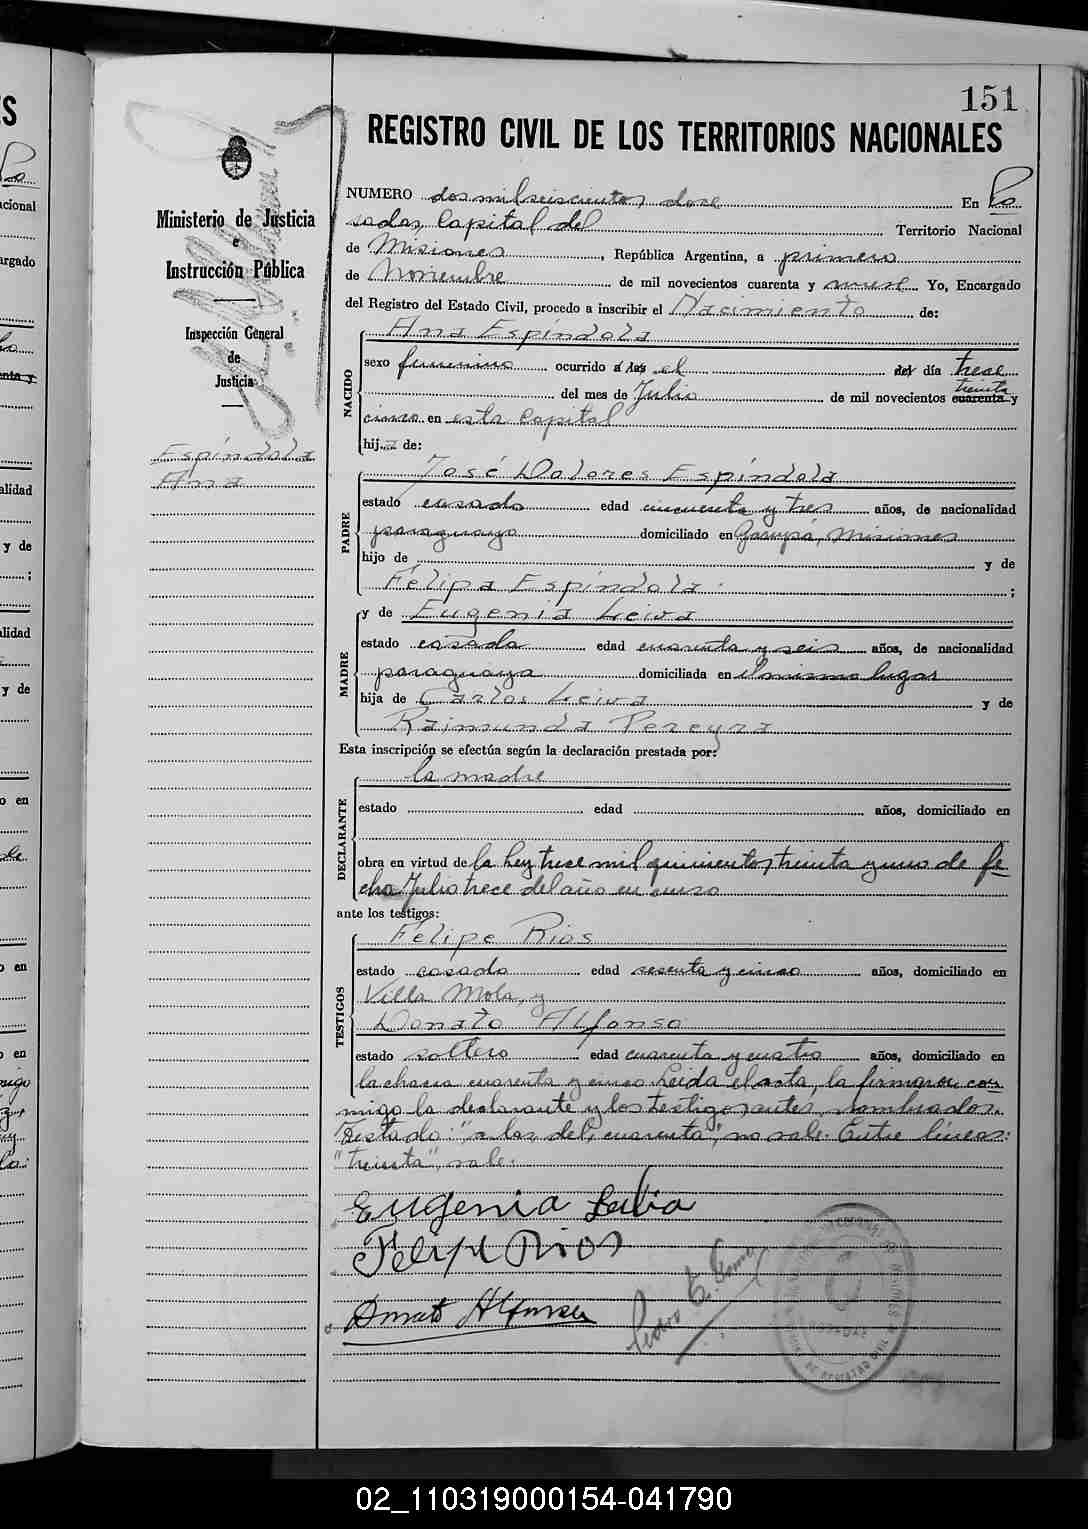 151
REGISTRO CIVIL DE LOS TERRITORIOS NACIONALES
Ministerio de Justicia
e
Instrucción Pública
Inspección General
de
Justicia
Espíndola
Ana
NUMERO dos mil seiscientos doce En Po
sadas, Capital del Territorio Nacional
de Misiones, República Argentina, a primero
de Noviembre de mil novecientos cuarenta y nueve Yo, Encargado
del Registro del Estado Civil, procedo a inscribir el Nacimiento de:
NACIDO
Ana Espíndola
sexo femenino ocurrido a las el del día trece
treinta
del mes de Julio de mil novecientos cuarenta y
cinco en esta Capital
hija de:
PADRE
José Dolores Espíndola
estado casado edad cincuenta y tres años, de nacionalidad
paraguayo domiciliado en Garupá, Misiones
hijo de y de
Felipa Espíndola ;
MADRE
y de Eugenia Leiva
estado casada edad cuarenta y seis años, de nacionalidad
paraguaya domiciliada en el mismo lugar
hija de Carlos Leiva y de
Raimunda Pereyra
Esta inscripción se efectúa según la declaración prestada por:
DECLARANTE
la madre
estado edad años, domiciliado en
obra en virtud de la Ley trece mil quinientos treinta y uno de fe
cha Julio trece del año en curso
ante los testigos:
TESTIGOS
Felipe Rios
estado casado edad sesenta y cinco años, domiciliado en
Villa Mola, y
Donato Alfonso
estado soltero edad cuarenta y cuatro años, domiciliado en
la chacra cuarenta y cinco Leída el acta, la firmaron con
migo la declarante y los testigos antes nombrados.
Testado: "a las, del, cuarenta", no vale. Entre líneas:
"treinta", vale.
Eugenia
Felipe Rios
Donato Alfonso
Pedro E.
02_110319000154-041790